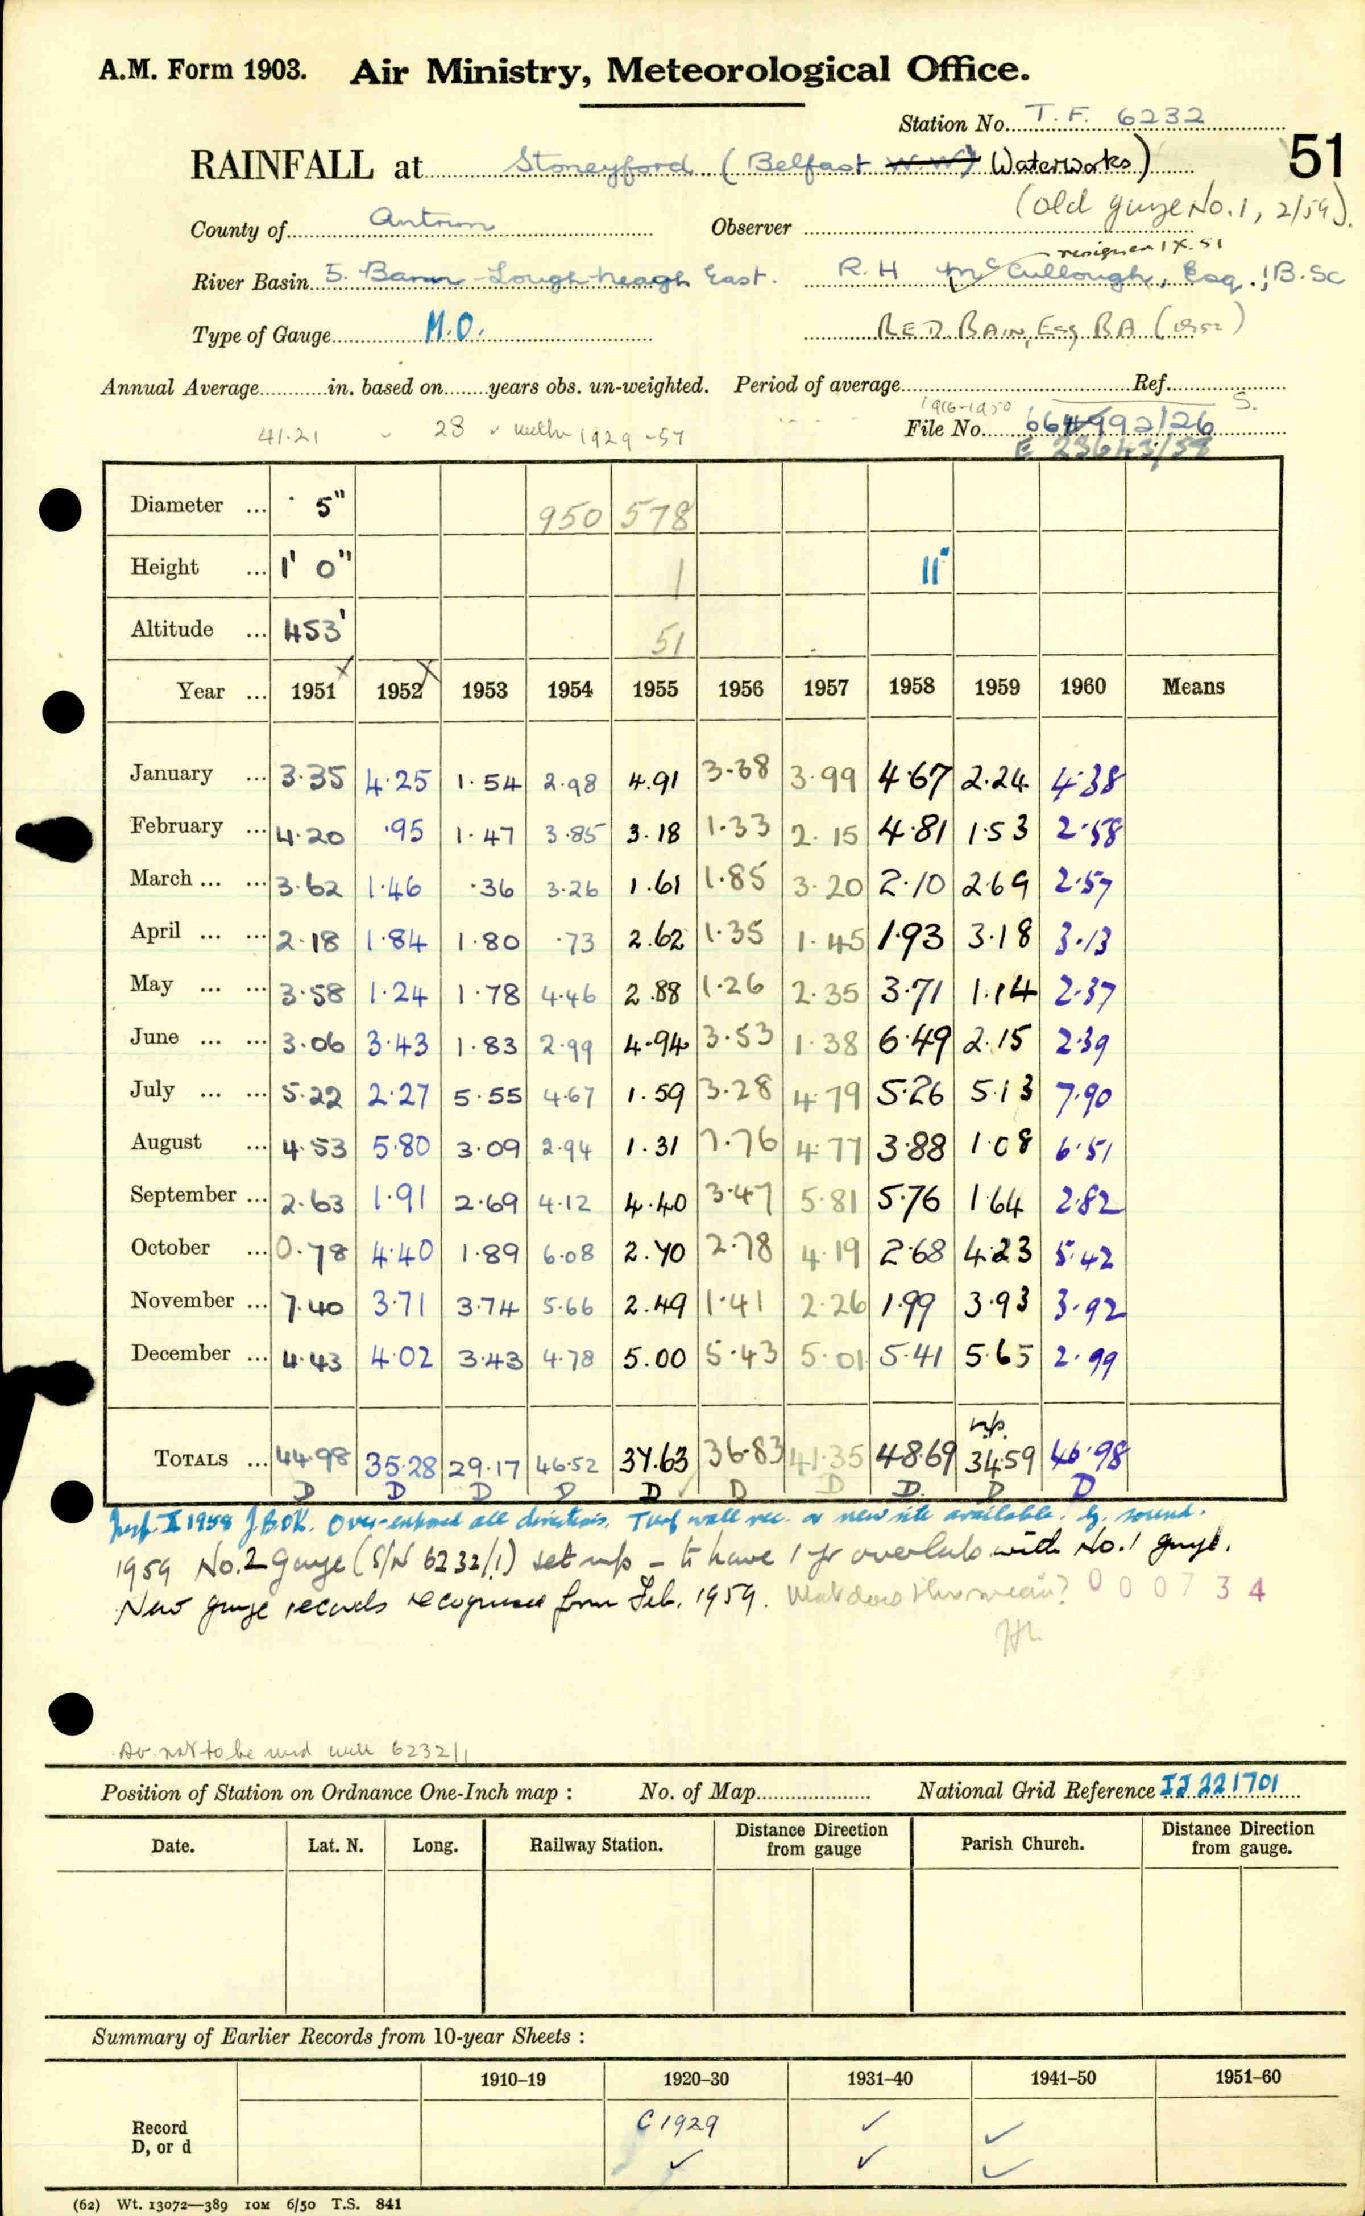 A.M. Form 1903. Air Ministry, Meteorological Office.
Station No. T.F. 6232
RAINFALL at Stoneyford (Belfast W.W) Waterworks) 51
(old gauge No. 1, 2/59).
County of Antrim Observer
resigned 1X.51
River Basin 5. Bann - Lough Neagh East. R.H McCullough, Esq., B.Sc
Type of Gauge M.O. R.E.D. BAIN, Esq BA (1952)
Annual Average in. based on years obs. un-weighted. Period of average Ref.
1916-1950 S.
41.21 28 1929-57 File No. 992/26
E 23643/58
Diameter ... 5" 950 578
Height ... 1' 0" 1 11"
Altitude ... 453' 51
Year ... 1951 X 1952 X 1953 1954 1955 1956 1957 1958 1959 1960 Means
January ... 3.35 4.25 1.54 2.98 4.91 3.38 3.99 4.67 2.24 4.38
February ... 4.20 .95 1.47 3.85 3.18 1.33 2.15 4.81 1.53 2.58
March ... ... 3.62 1.46 .36 3.26 1.61 1.85 3.20 2.10 2.69 2.57
April ... ... 2.18 1.84 1.80 .73 2.62 1.35 1.45 1.93 3.18 3.13
May ... ... 3.58 1.24 1.78 4.46 2.88 1.26 2.35 3.71 1.14 2.37
June ... ... 3.06 3.43 1.83 2.99 4.94 3.53 1.38 6.49 2.15 2.39
July ... ... 5.22 2.27 5.55 4.67 1.59 3.28 4.79 5.26 5.13 7.90
August ... 4.53 5.80 3.09 2.94 1.31 7.76 4.77 3.88 1.08 6.51
September ... 2.63 1.91 2.69 4.12 4.40 3.47 5.81 5.76 1.64 2.82
October ... 0.78 4.40 1.89 6.08 2.70 2.78 4.19 2.68 4.23 5.42
November ... 7.40 3.71 3.74 5.66 2.49 1.41 2.26 1.99 3.93 3.92
December ... 4.43 4.02 3.43 4.78 5.00 5.43 5.01 5.41 5.65 2.99
n.p.
TOTALS ... 44.98 35.28 29.17 46.52 37.63 36.83 41.35 48.69 34.59 46.98
D D D D D D D D. D
Insp. X 1958 J.BOK. Over-exposed all directions. Turf wall rec. or new site available. sound.
1959 No. 2 gauge (S/N 6232/1) set up - to have 1 yr overlap with No. 1 gauge.
New gauge records recognised from Feb. 1959. What does this mean? 000734
Av. not to be used with 6232/1
Position of Station on Ordnance One-Inch map : No. of Map National Grid Reference IJ 221701
Date. Lat. N. Long. Railway Station. Distance Direction from gauge Parish Church. Distance Direction from gauge.
Summary of Earlier Records from 10-year Sheets :
1910–19 1920–30 1931–40 1941–50 1951–60
Record C 1929 ✓ ✓
D, or d ✓ ✓ ✓
(62) Wt. 13072—389 10M 6/50 T.S. 841